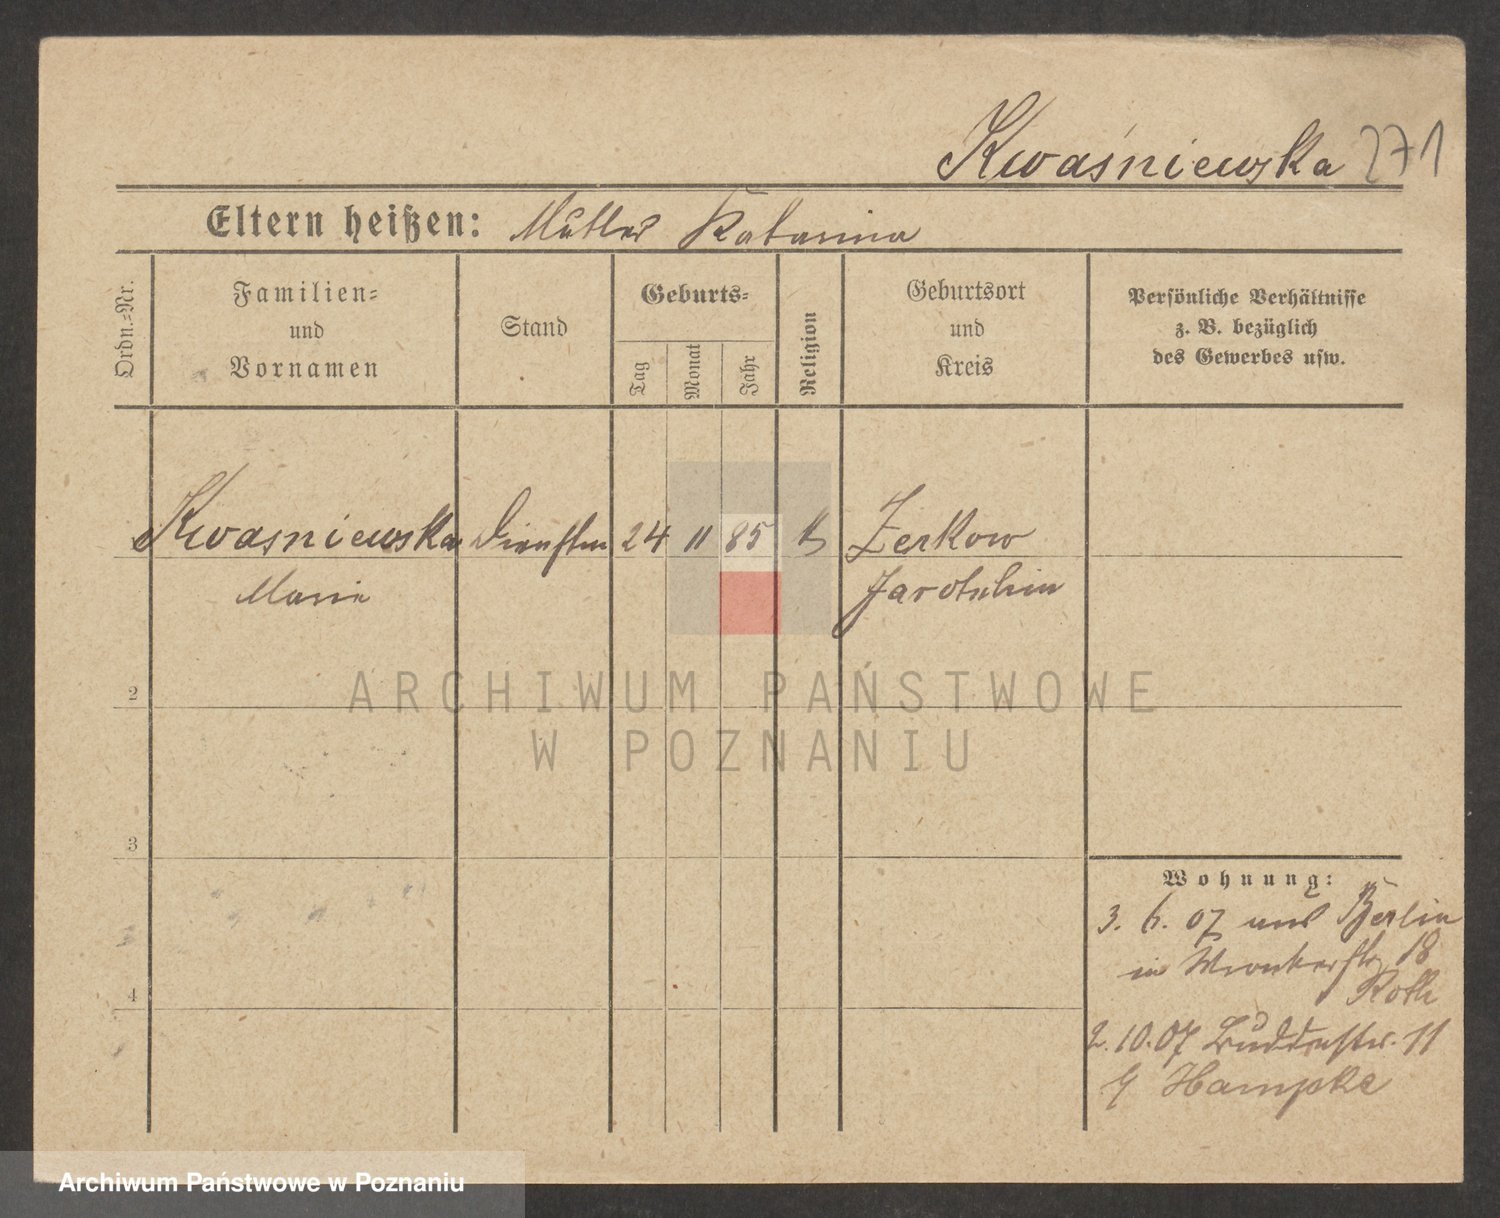 Kwaśniewska 271
Eltern heißen: Mutter Katarina
Ordn.-Nr.
Familien-
und
Vornamen
Stand
Geburts-
Tag
Monat
Jahr
Religion
Geburtsort
und
Kreis
Persönliche Verhältnisse
z. B. bezüglich
des Gewerbes usw.
Kwasniewska 24 11 85 Zerkow
Marie Jarotschin
2
3
4
ARCHIWUM PAŃSTWOWE
W POZNANIU
Wohnung:
3. 6. 07 aus Berlin
in Wronkerstr 18
Roth
2. 10. 07 Buddestr. 11
Hampke
Archiwum Państwowe w Poznaniu